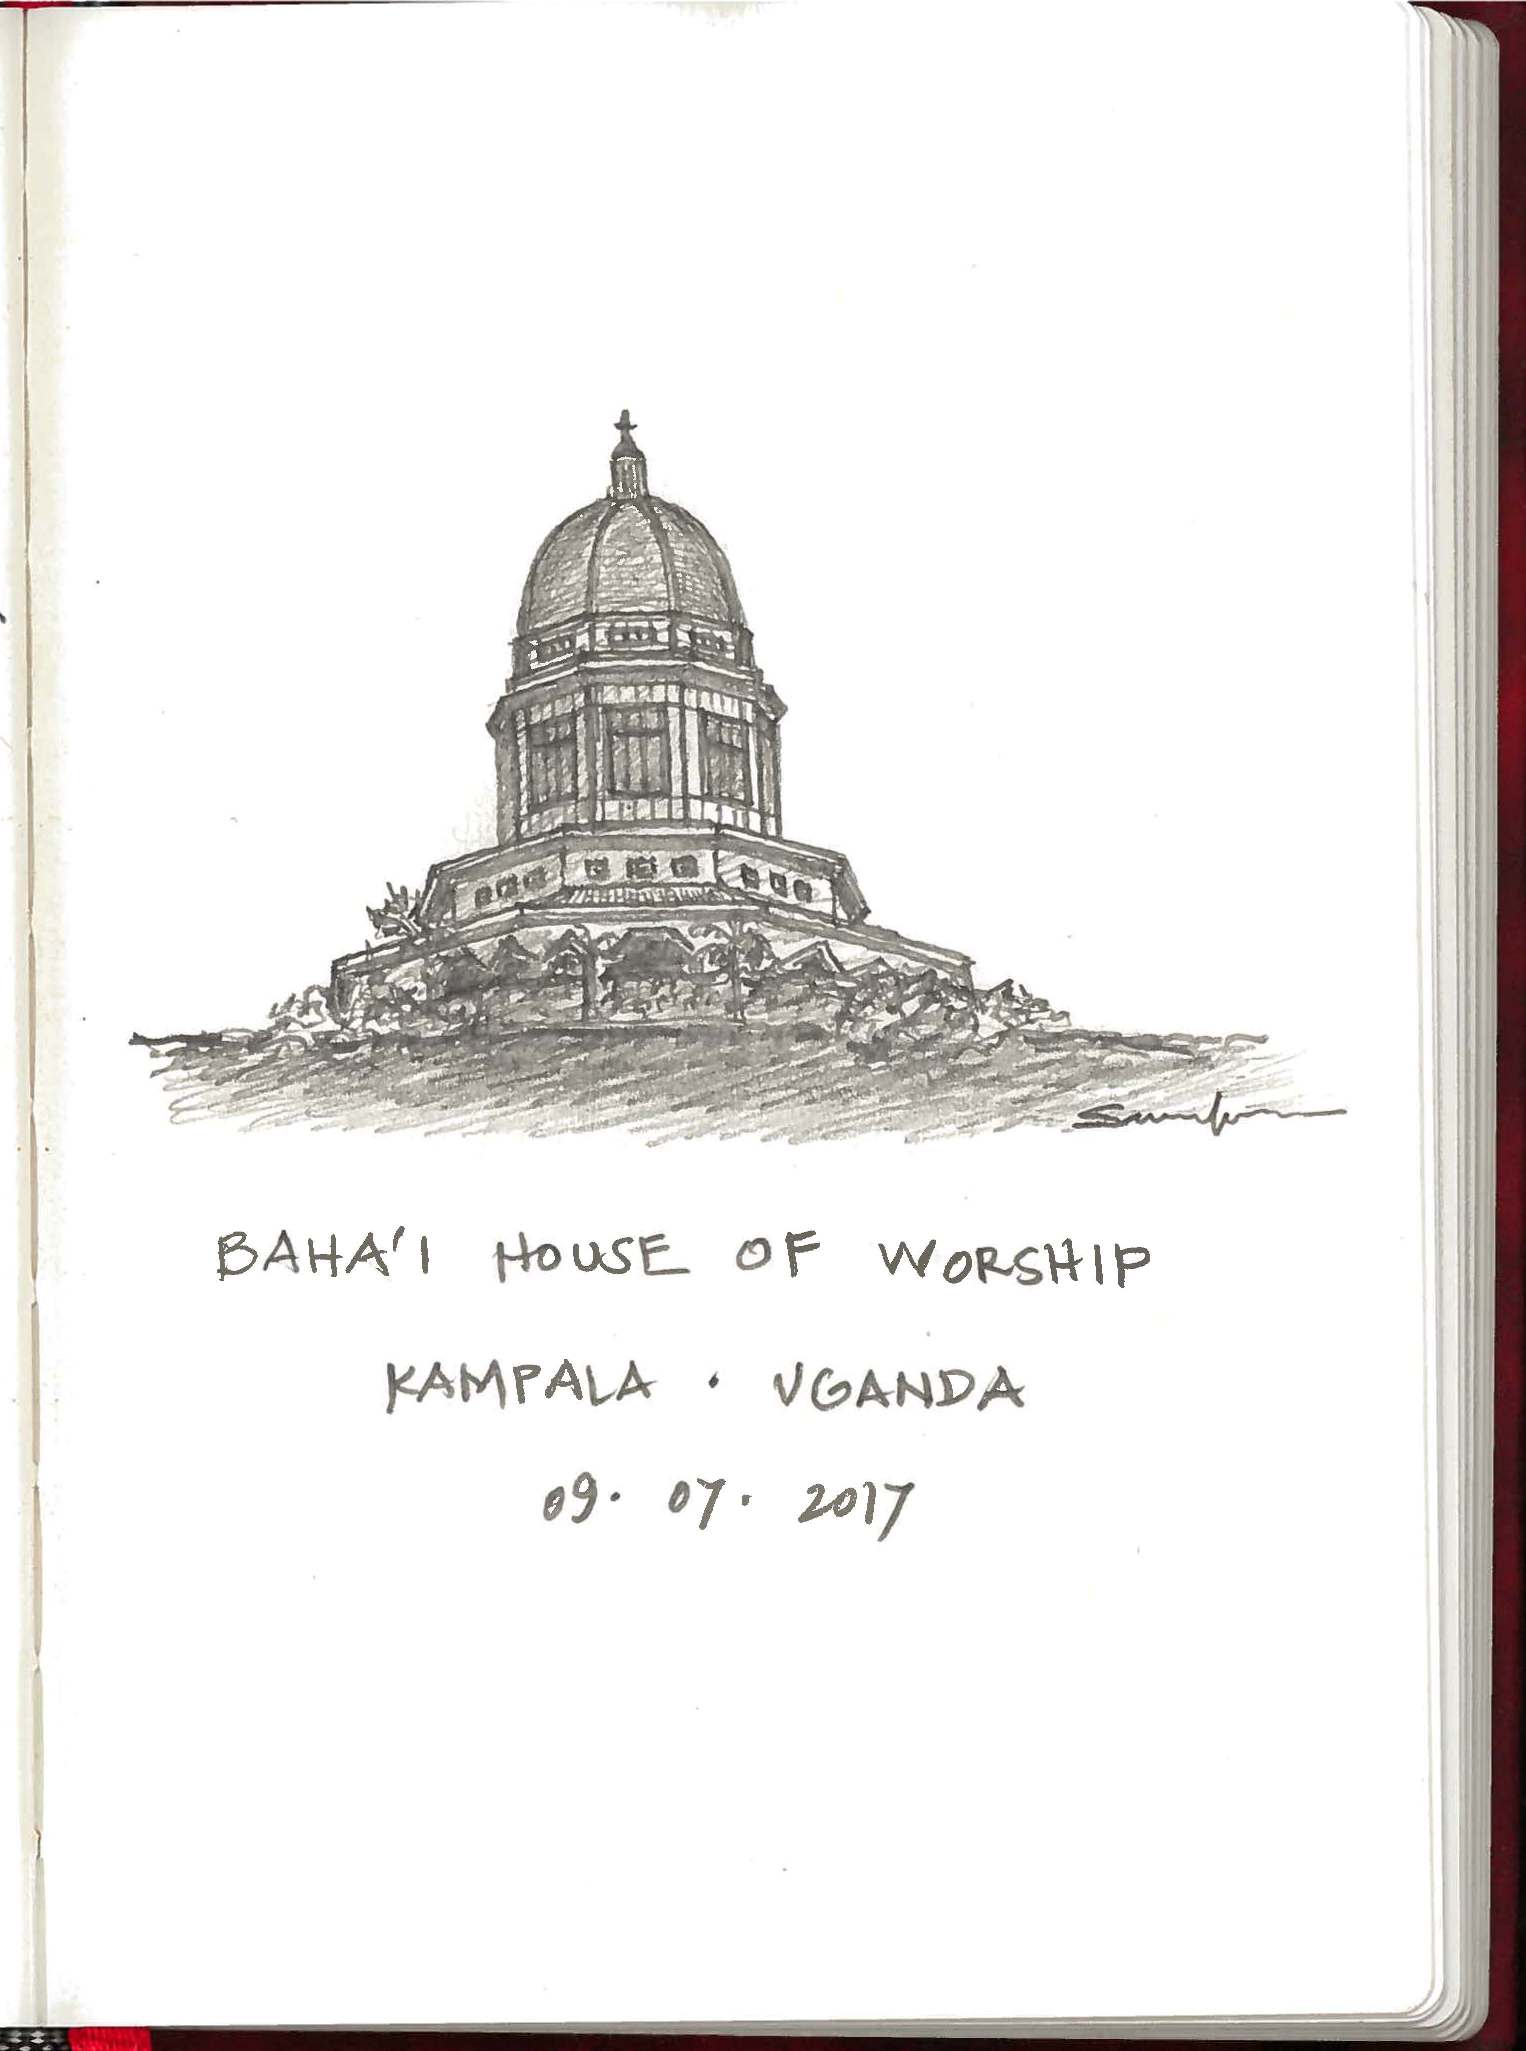 BAHA'I HOUSE OF WORSHIP
KAMPALA · UGANDA
09. 07. 2017